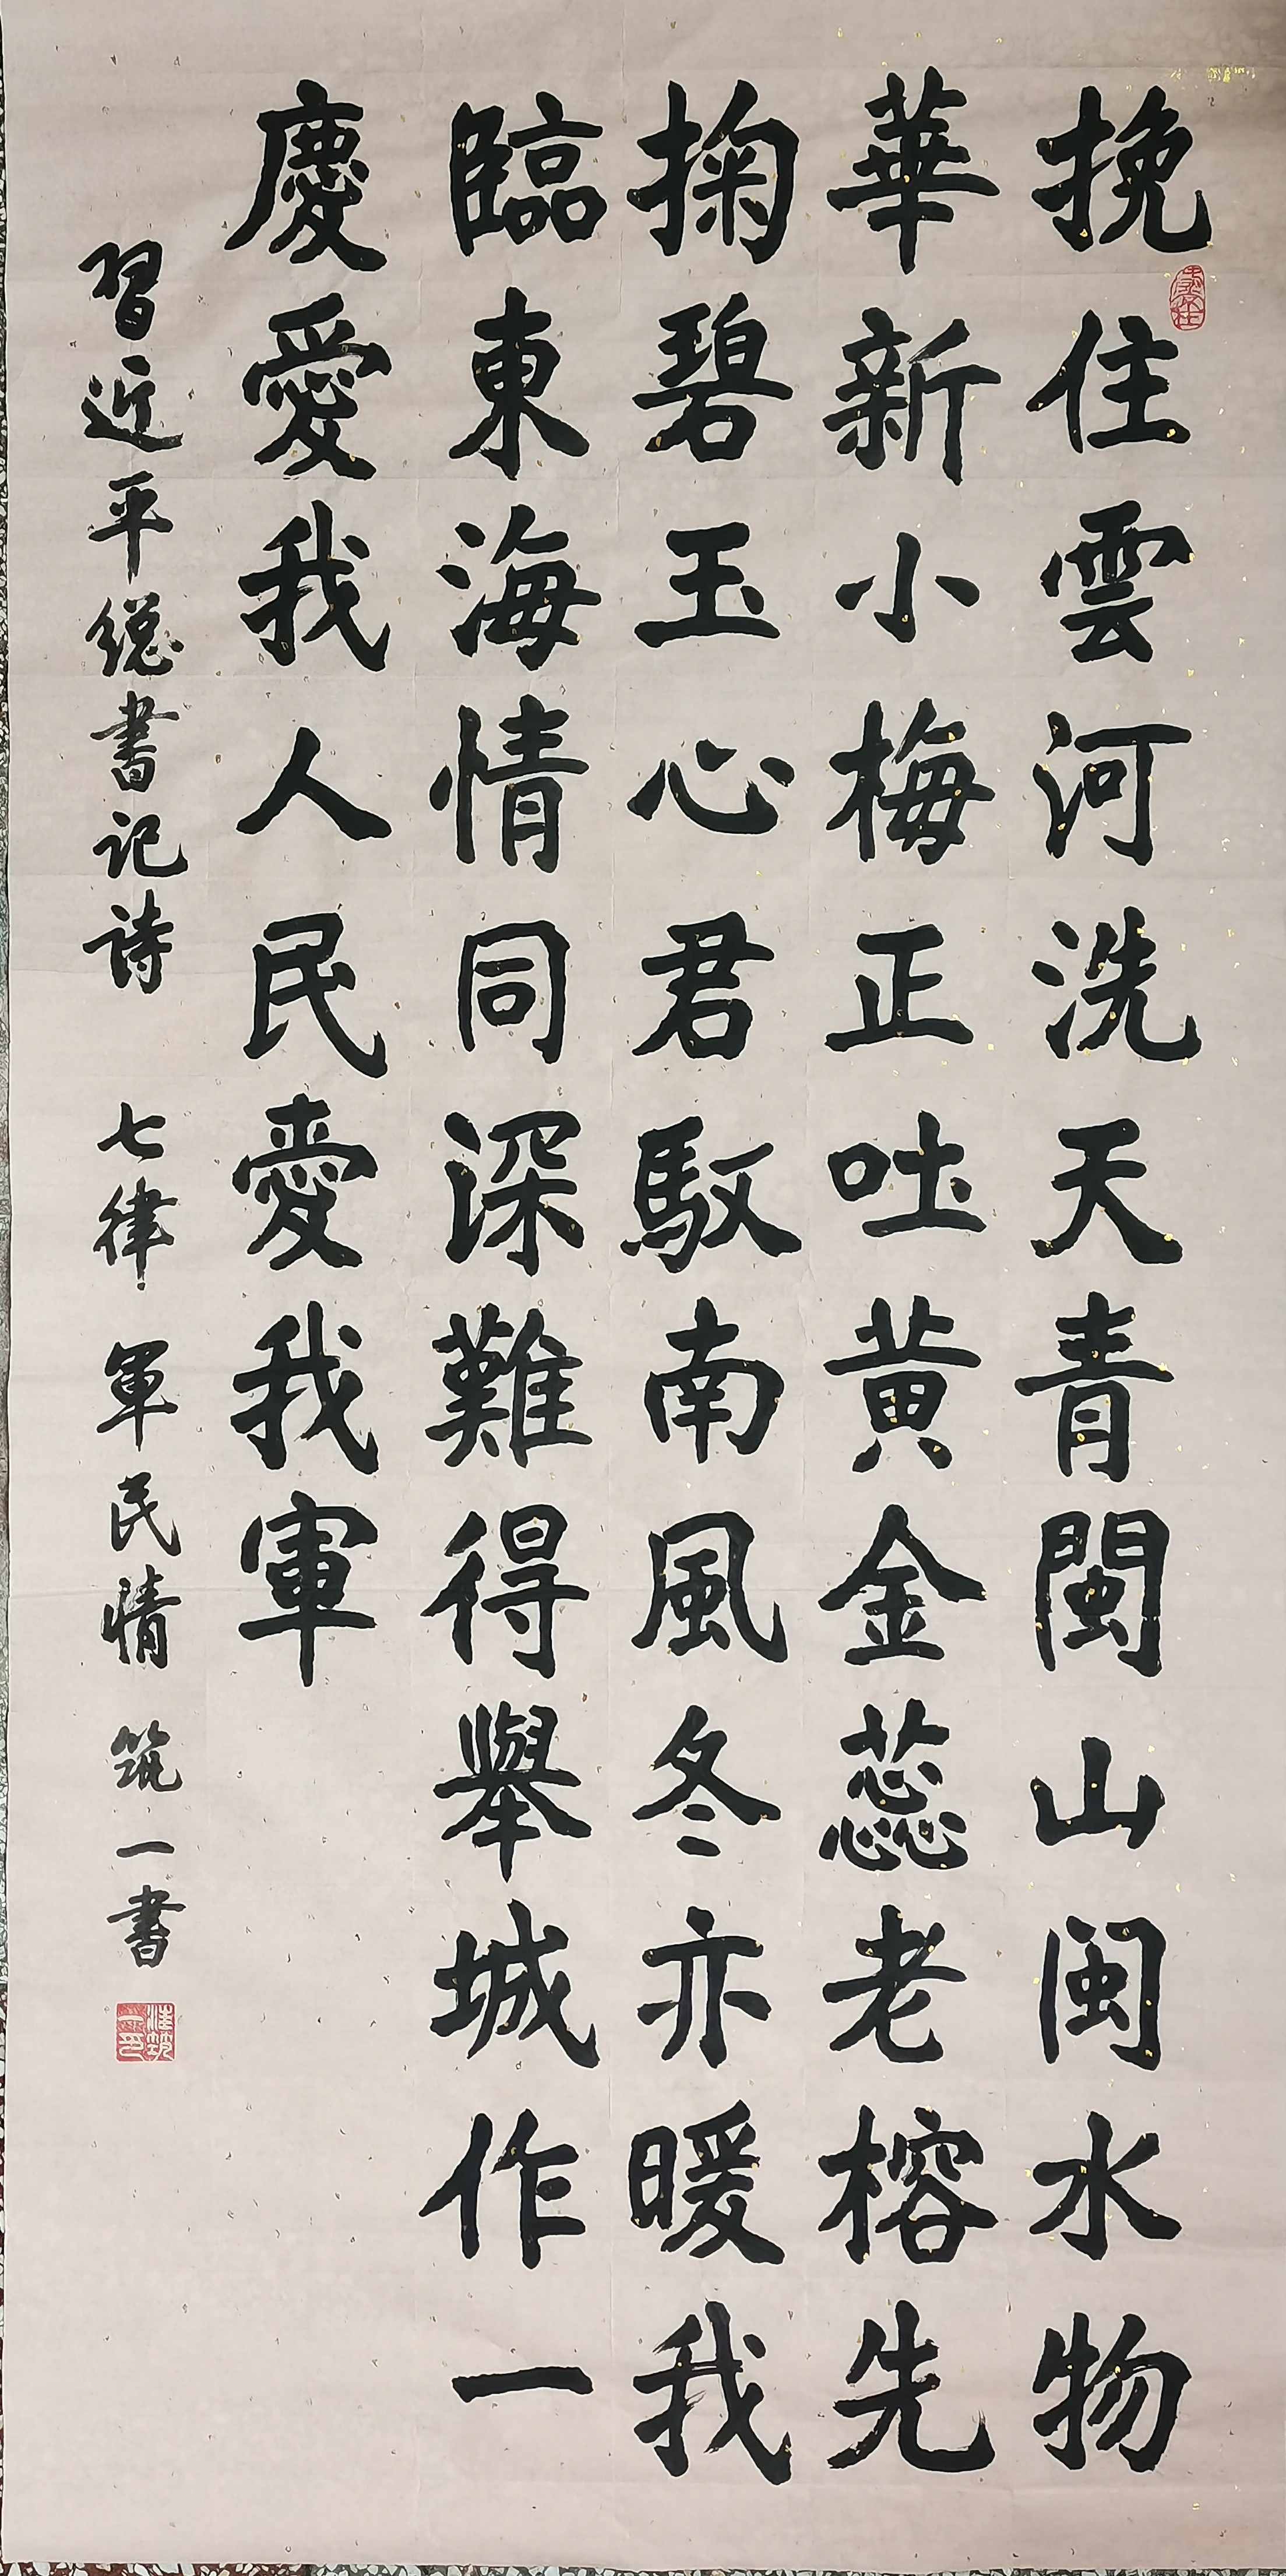 挽住雲河洗天青閩山闽水物
華新小梅正吐黄金蕊老榕先
掬碧玉心君馭南風冬亦暖我
臨東海情同深難得舉城作一
慶愛我人民愛我軍
習近平総書记诗 七律 軍民情 筑一書